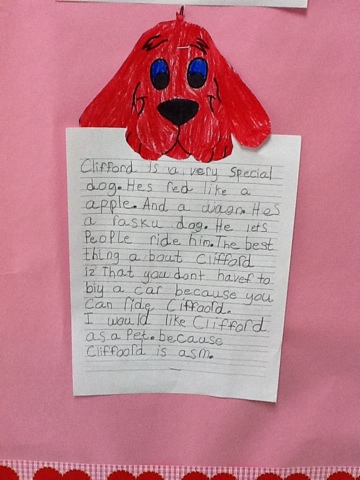 Clifford is a very special
dog. Hes red like a
apple. And a wagn. Hes
a rasku dog. He lets
People ride him. The best
thing a bout Clifford
iz that you dont havef to
biy a car because you
can ride Cliffoord.
I would like Clifford
as a Pet. because
Cliffoord is asm.